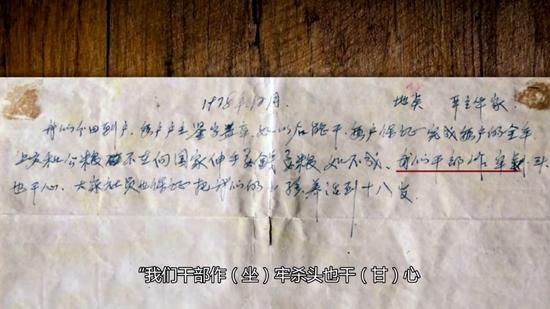 1978年12月. 地点 严立华家
我们分田到户,每户户主签字盖章,如以后能干,每户保证完成每户的全年
上交和公粮 不在向国家伸手要钱要粮 如不成,我们干部作牢刹头
也干心,大家社员也保证把我们的小孩养活到十八岁.
“我们干部作（坐）牢杀头也干（甘）心